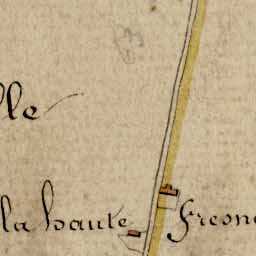 lle
la haute fresn